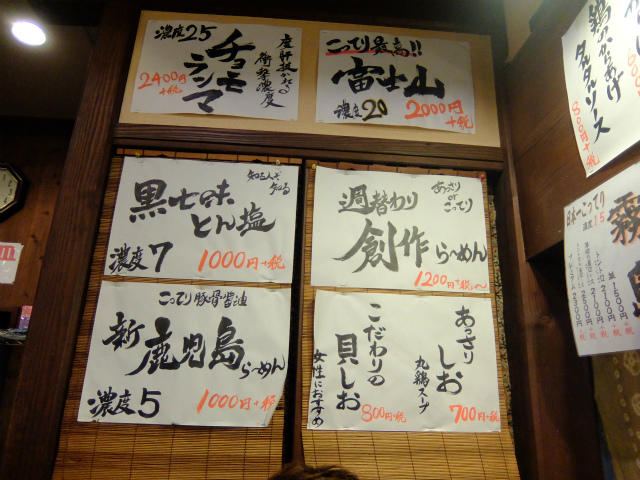 濃度25
チョモ
ランマ
度肝抜かれる
衝撃濃度
2400円
+税
こってり最高!!
富士山
濃度20
2000円
+税
黒七味
とん塩
知る人ぞ
知る
濃度7
1000円+税
週替わり
あっさり
or
こってり
創作
らーめん
1200円+税〜
こってり豚骨醤油
新
鹿児島
らーめん
濃度5
1000円+税
あっさり
しお
丸鶏スープ
700円+税
こだわりの
貝しお
女性におすすめ
800円+税
鶏のからあげ
タルタルソース
800円
+税
日本一こってり
濃度15
霧
塩
1500円
2100円
2500円
プレミアム
2300円
+税
+税
+税
+税